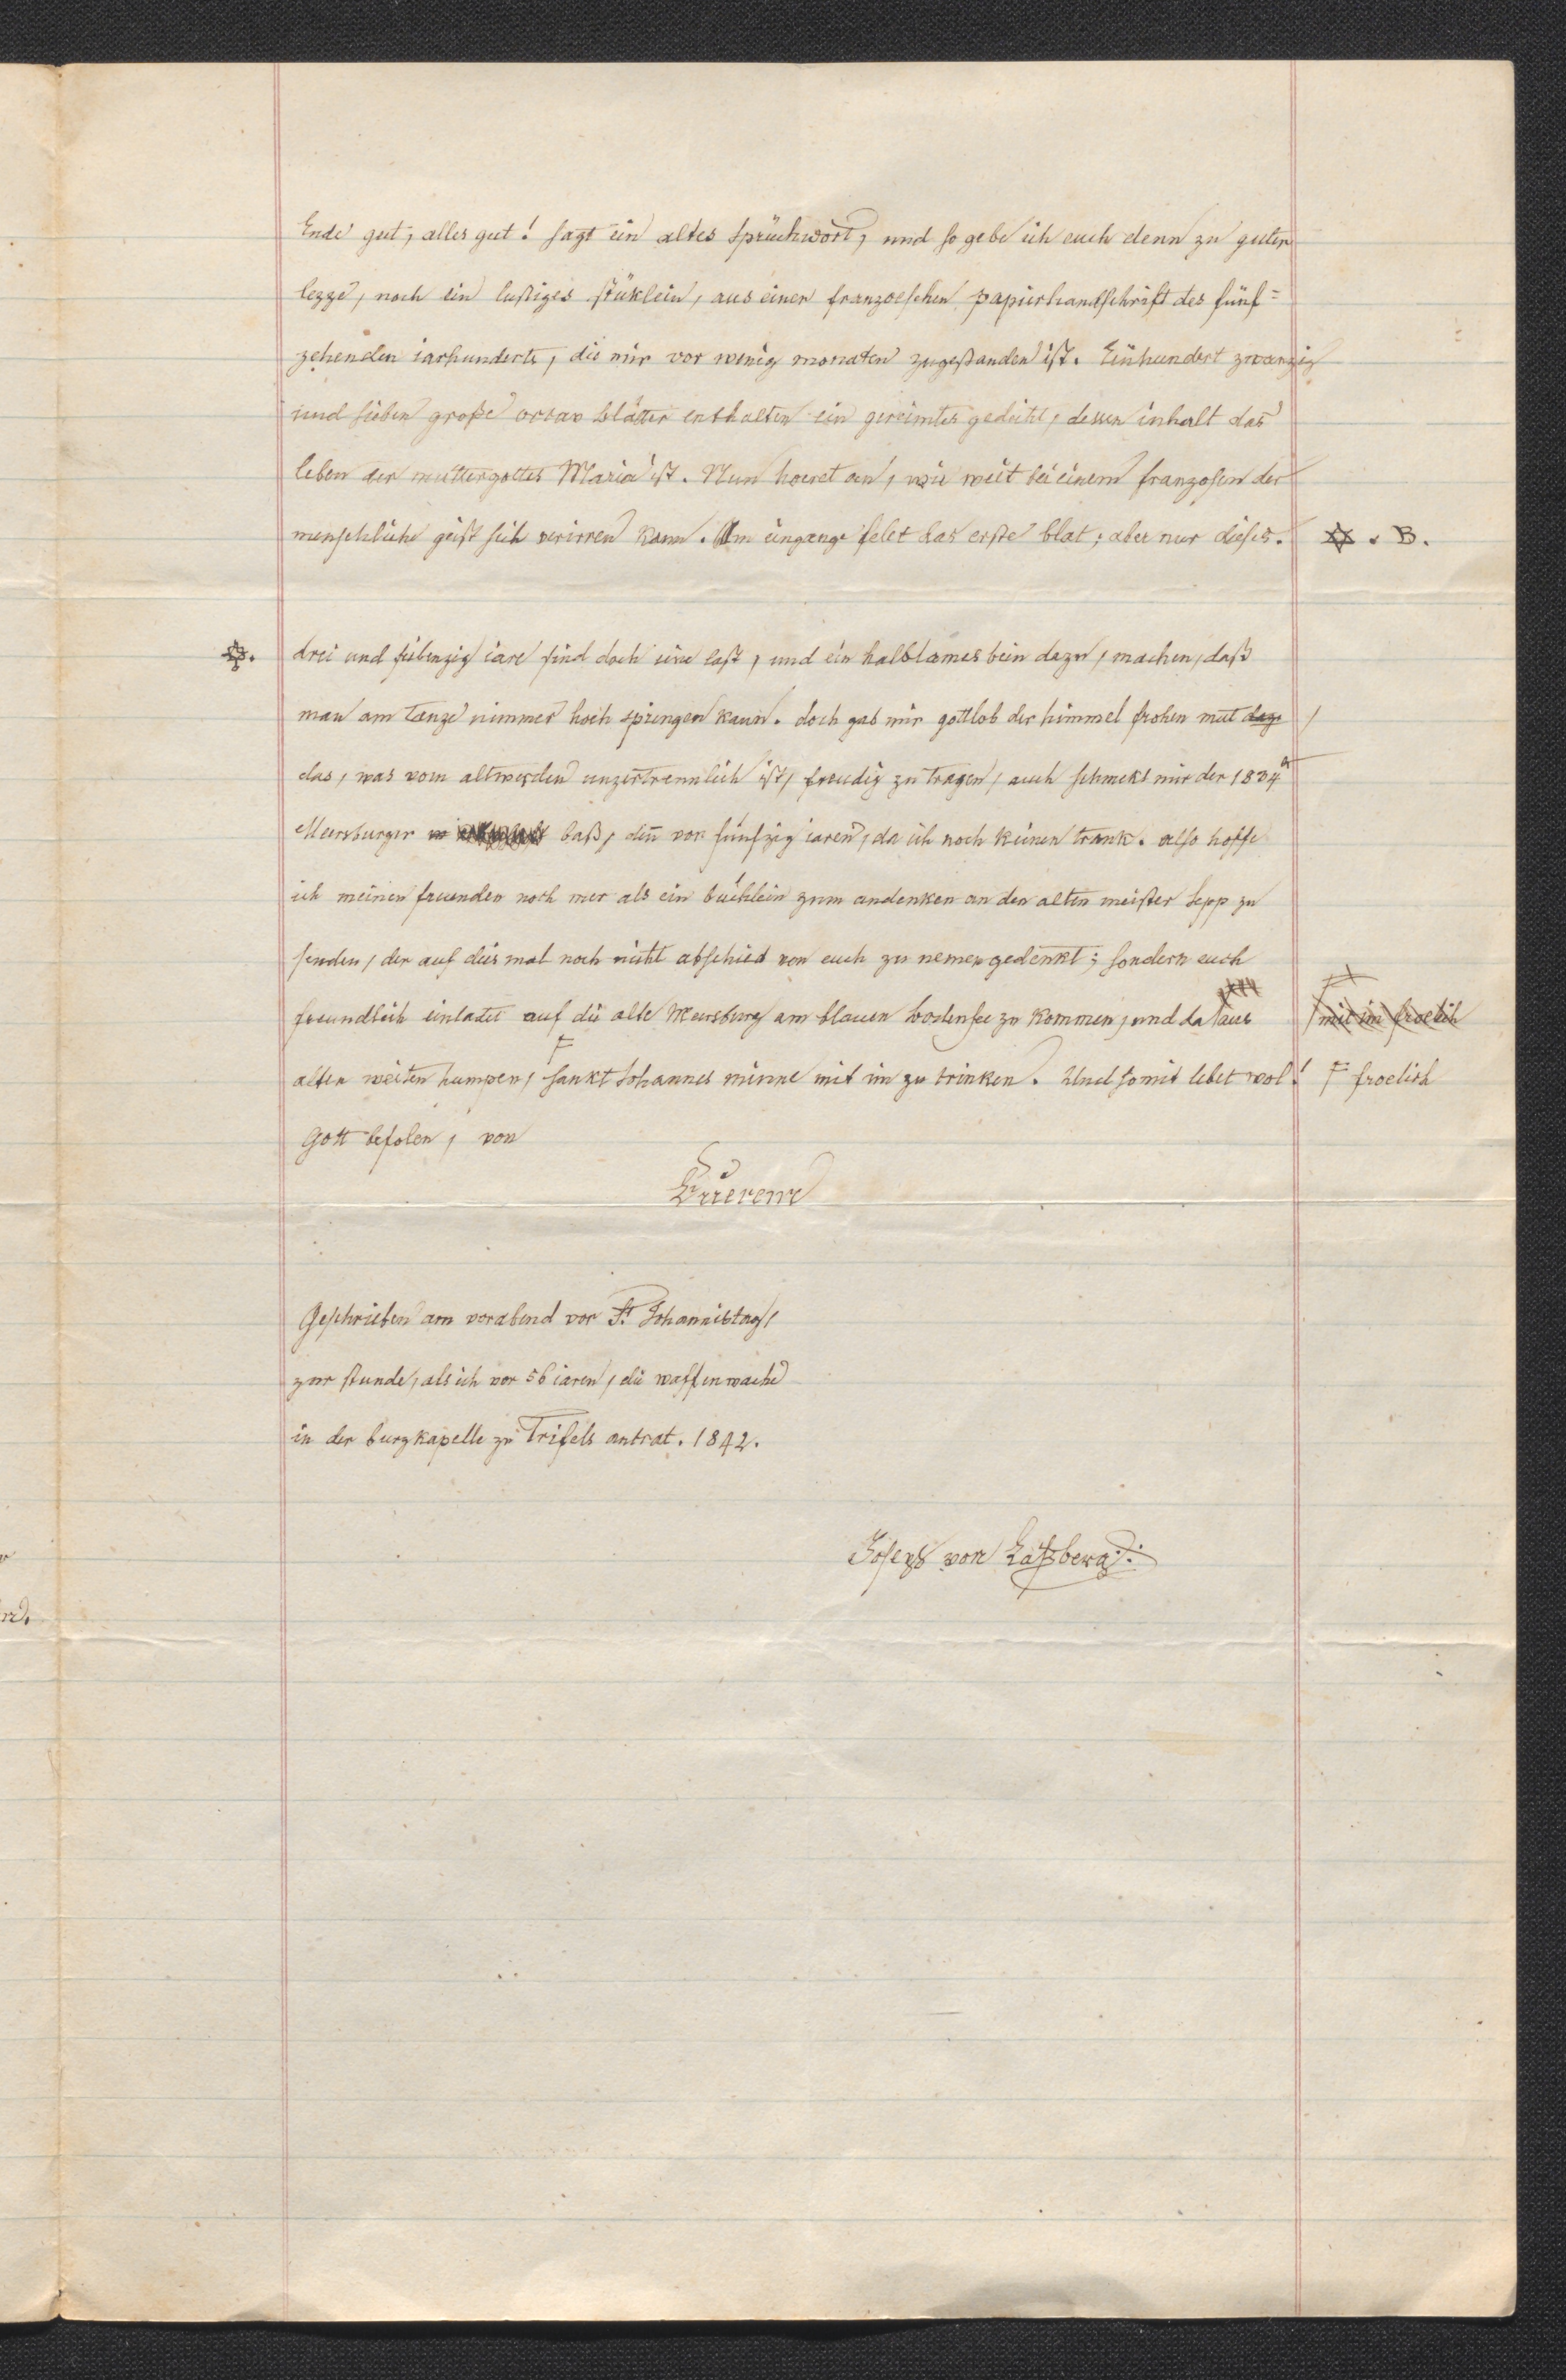 Ende gut, alles gut! sagt ein altes sprüchwort, und so gebe ich euch denn zu guter
lezze, noch ein lustiges stüklein, aus einer franzoeschen papierhandschrift des fünf=
zehenden iarhunderts, die mir vor wenig monaten zugestanden ist. Einhundert zwanzig
und sieben große octav blätter enthalten ein gereimtes gedicht, dessen inhalt das
leben der muttergottes Maria ist. Nun hoeret an, wie weit bei einem franzosen der
menschliche geist sich verirren kann. Am eingange felet das erste blat; aber nur dieses. ✡. B.
✡. drei und siebenzig iare sind doch eine last, und ein halblames bein dazu, machen, daß
man am tanze nimmer hoch springen kann. doch gab mir gottlob der himmel frohen mut dazu /
das, was vom altwerden unzertrennlich ist, freudig zu tragen, auch schmekt mir der 1834er
Meersburger baß, deñ vor fünfzig iaren, da ich noch keinen trank. also hoffe
ich meinen freunden noch mer als ein büchlein zum andenken an den alten meister Sepp zu
senden, der auf dies mal noch nicht abschied von euch zu nemen gedenkt; sondern euch
freundlich einladet auf die alte Meersburg am blauen bodensee zu kommen, und da aus mit im froelich
alten weiten humpen, F sankt Johannes minne mit im zu trinken. Und somit lebet wol! F froelich
Gott befolen, von
Euerem
Geschrieben am vorabend vor St. Johannistag,
zur stunde, als ich vor 56 iaren, die waffenwache
in der burgkapelle zu Trifels antrat. 1842.
Joseph von Laßberg.